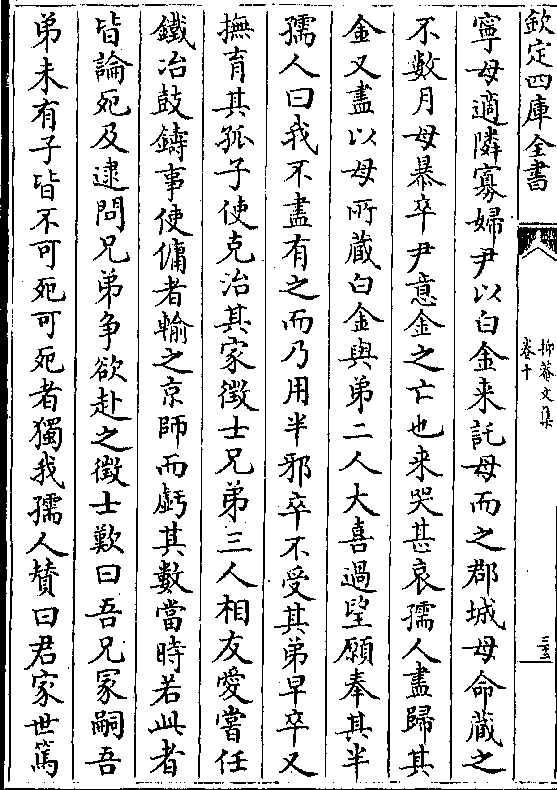 欽定四庫全書
抑菴文集
卷十
三
寧母適隣寡婦尹以白金来託母而之郡城母命蔵之
不數月母暴卒尹意金之亡也来哭甚哀孺人盡歸其
金又盡以母所蔵白金與弟二人大喜過望願奉其半
孺人曰我不盡有之而乃用半邪卒不受其弟早卒又
撫育其孤子使克治其家徴士兄弟三人相友愛嘗任
鐵冶鼓鑄事使傭者輸之京師而虧其數當時若此者
皆論死及逮問兄弟争欲赴之徴士歎曰吾兄冡嗣吾
弟未有子皆不可死可死者獨我孺人賛曰君家世篤